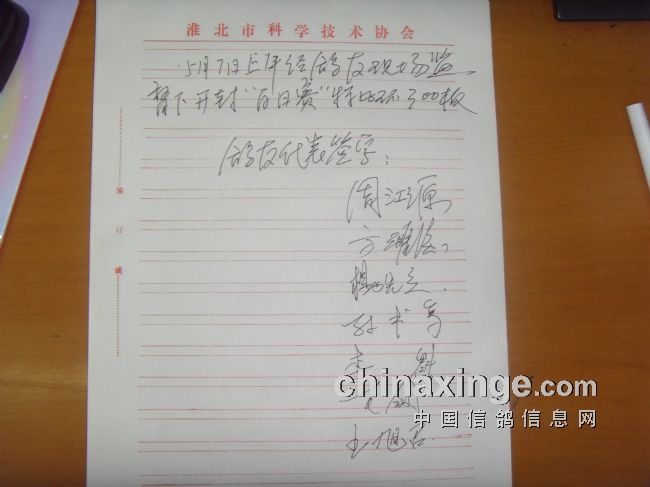 淮北市科学技术协会
5月7日上午经鸽友现场监
督下开封“百日赛”特比环300枚
鸽友代表签字:
周江源
方
杨
孙书
李
王旭
装
订
线
chinaxinge.com
中国信鸽信息网